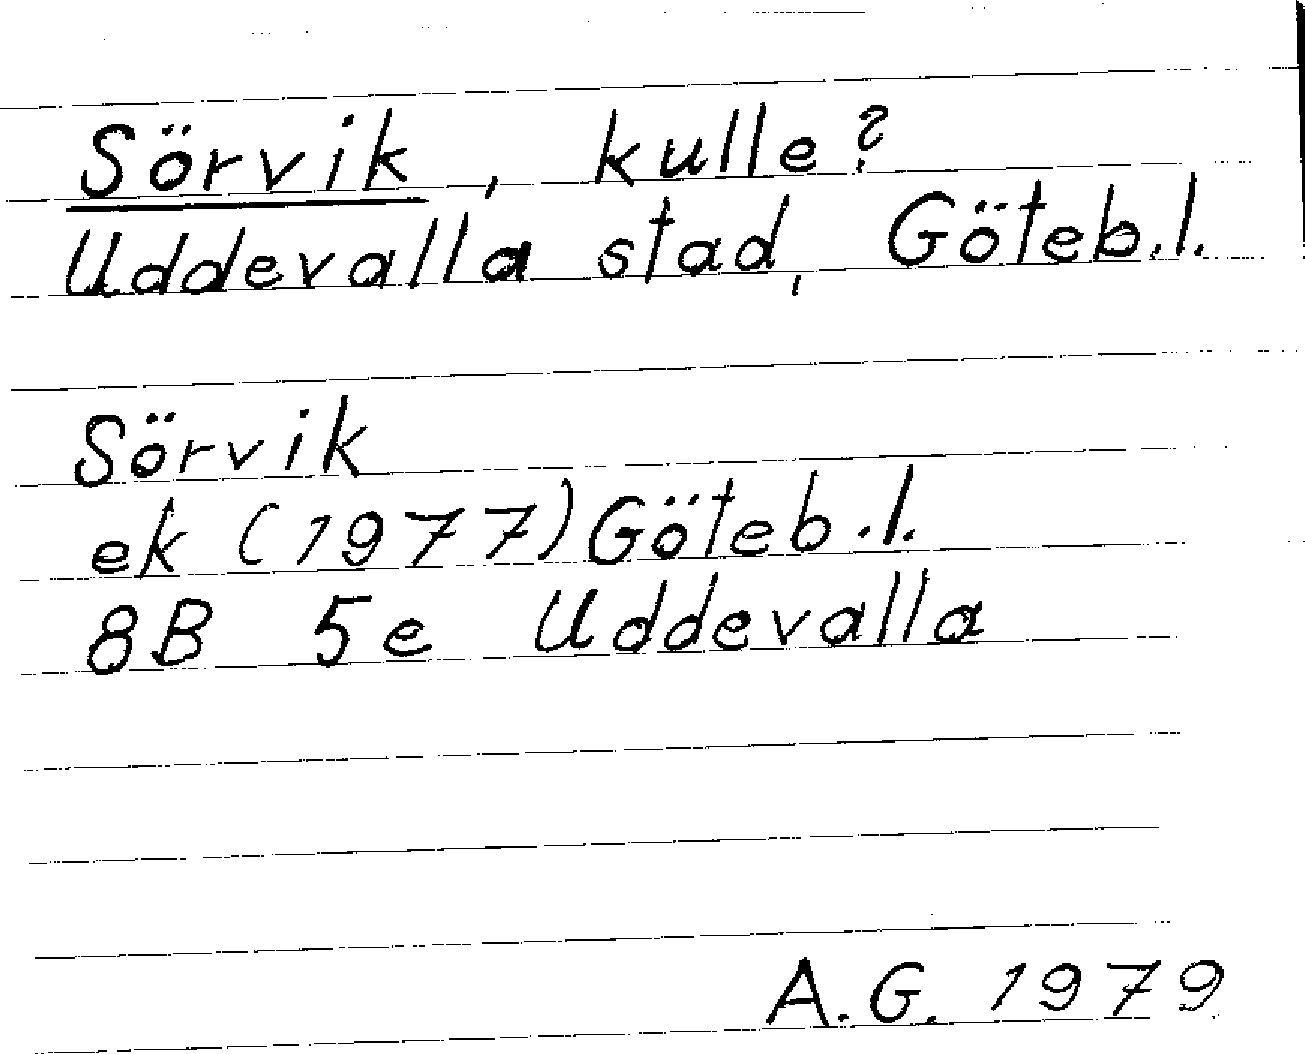 Sörvik, kulle?
Uddevalla stad, Göteb.l.
Sörvik
ek (1977) Göteb.l.
8B 5e Uddevalla
A.G. 1979